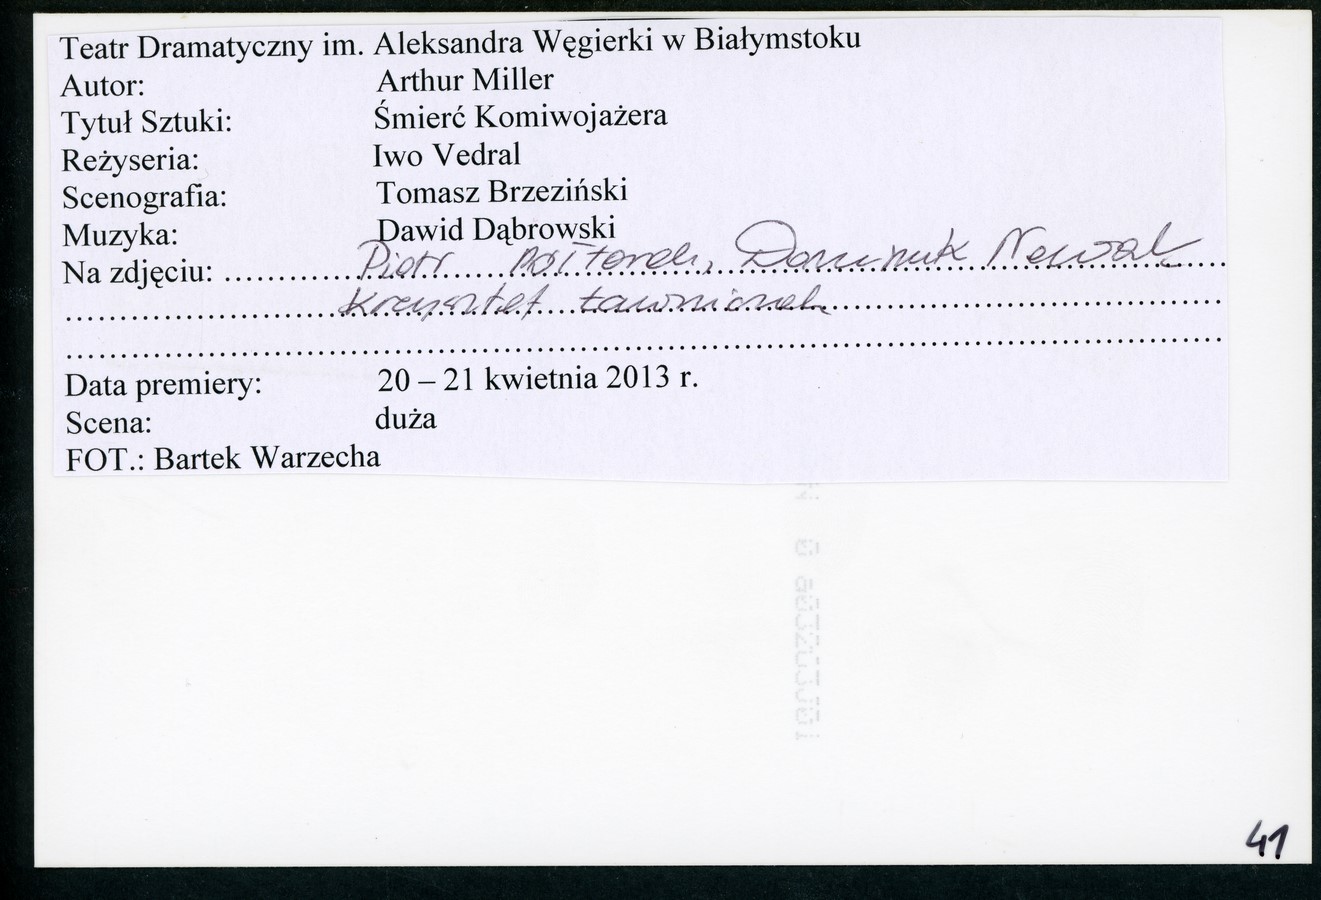 Teatr Dramatyczny im. Aleksandra Węgierki w Białymstoku
Autor: Arthur Miller
Tytuł Sztuki: Śmierć Komiwojażera
Reżyseria: Iwo Vedral
Scenografia: Tomasz Brzeziński
Muzyka: Dawid Dąbrowski
Na zdjęciu: Piotr Półtorak, Dominik Nowak
Krzysztof Ławniczak
Data premiery: 20 – 21 kwietnia 2013 r.
Scena: duża
FOT.: Bartek Warzecha
41